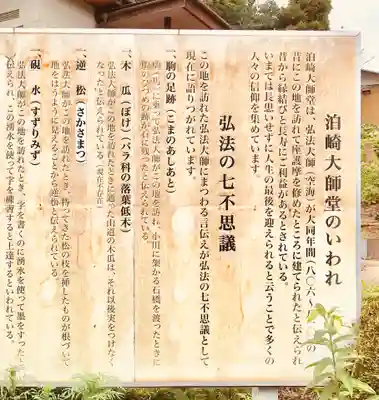 泊崎大師堂のいわれ
泊崎大師堂は、弘法大師(空海)が大同年間(八〇六〜八一〇)の
昔にこの地を訪れて護摩を修めたところに建てられたと伝えられ
昔から縁結びと長寿にご利益があるとされている。
いまでは長患いせずに人生の最後を迎えられると云うことで多くの
人々の信仰を集めています。
弘法の七不思議
この地を訪れた弘法大師にまつわる言伝えが弘法の七不思議として
現在に語りつがれています。
一、駒の足跡(こまのあしあと)
馬に乗って弘法大師がこの地を訪れ、川に架かる石橋を渡ったときに
駒のひづめの跡が石に残ったと伝えられている。
一、木瓜(ぼけ)(バラ科の落葉低木)
弘法大師がこの地を訪れたときに通った山道の木瓜は、それ以後実をつけなく
なったと伝えられている。(現在不存在)
一、逆松(さかさまつ)
弘法大師がこの地を訪れたとき、持ってきた松の枝を挿したものが根づいて
地をはうように見えることから逆松と伝えられている。
一、硯水(すずりみず)
弘法大師がこの地を訪れたとき、字を書くのに湧水を使って墨をすったと
伝えられ、この湧水を使って字を練習すると上達するといわれている。